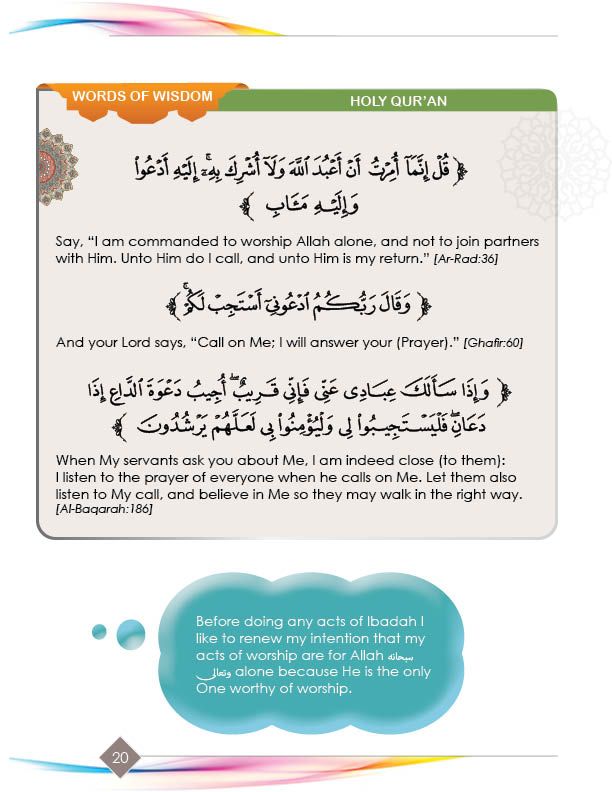 WORDS OF WISDOM
HOLY QUR'AN
﴿ قُلْ إِنَّمَآ أُمِرْتُ أَنْ أَعْبُدَ ٱللَّهَ وَلَآ أُشْرِكَ بِهِۦٓ ۚ إِلَيْهِ أَدْعُوا۟
وَإِلَيْهِ مَـَٔابِ ﴾
Say, “I am commanded to worship Allah alone, and not to join partners
with Him. Unto Him do I call, and unto Him is my return.” [Ar-Rad:36]
﴿ وَقَالَ رَبُّكُمُ ٱدْعُونِىٓ أَسْتَجِبْ لَكُمْ ۚ ﴾
And your Lord says, “Call on Me; I will answer your (Prayer).” [Ghafir:60]
﴿ وَإِذَا سَأَلَكَ عِبَادِى عَنِّى فَإِنِّى قَرِيبٌ ۖ أُجِيبُ دَعْوَةَ ٱلدَّاعِ إِذَا
دَعَانِ ۖ فَلْيَسْتَجِيبُوا۟ لِى وَلْيُؤْمِنُوا۟ بِى لَعَلَّهُمْ يَرْشُدُونَ ﴾
When My servants ask you about Me, I am indeed close (to them):
I listen to the prayer of everyone when he calls on Me. Let them also
listen to My call, and believe in Me so they may walk in the right way.
[Al-Baqarah:186]
Before doing any acts of Ibadah I
like to renew my intention that my
acts of worship are for Allah سبحانه
وتعالى alone because He is the only
One worthy of worship.
20